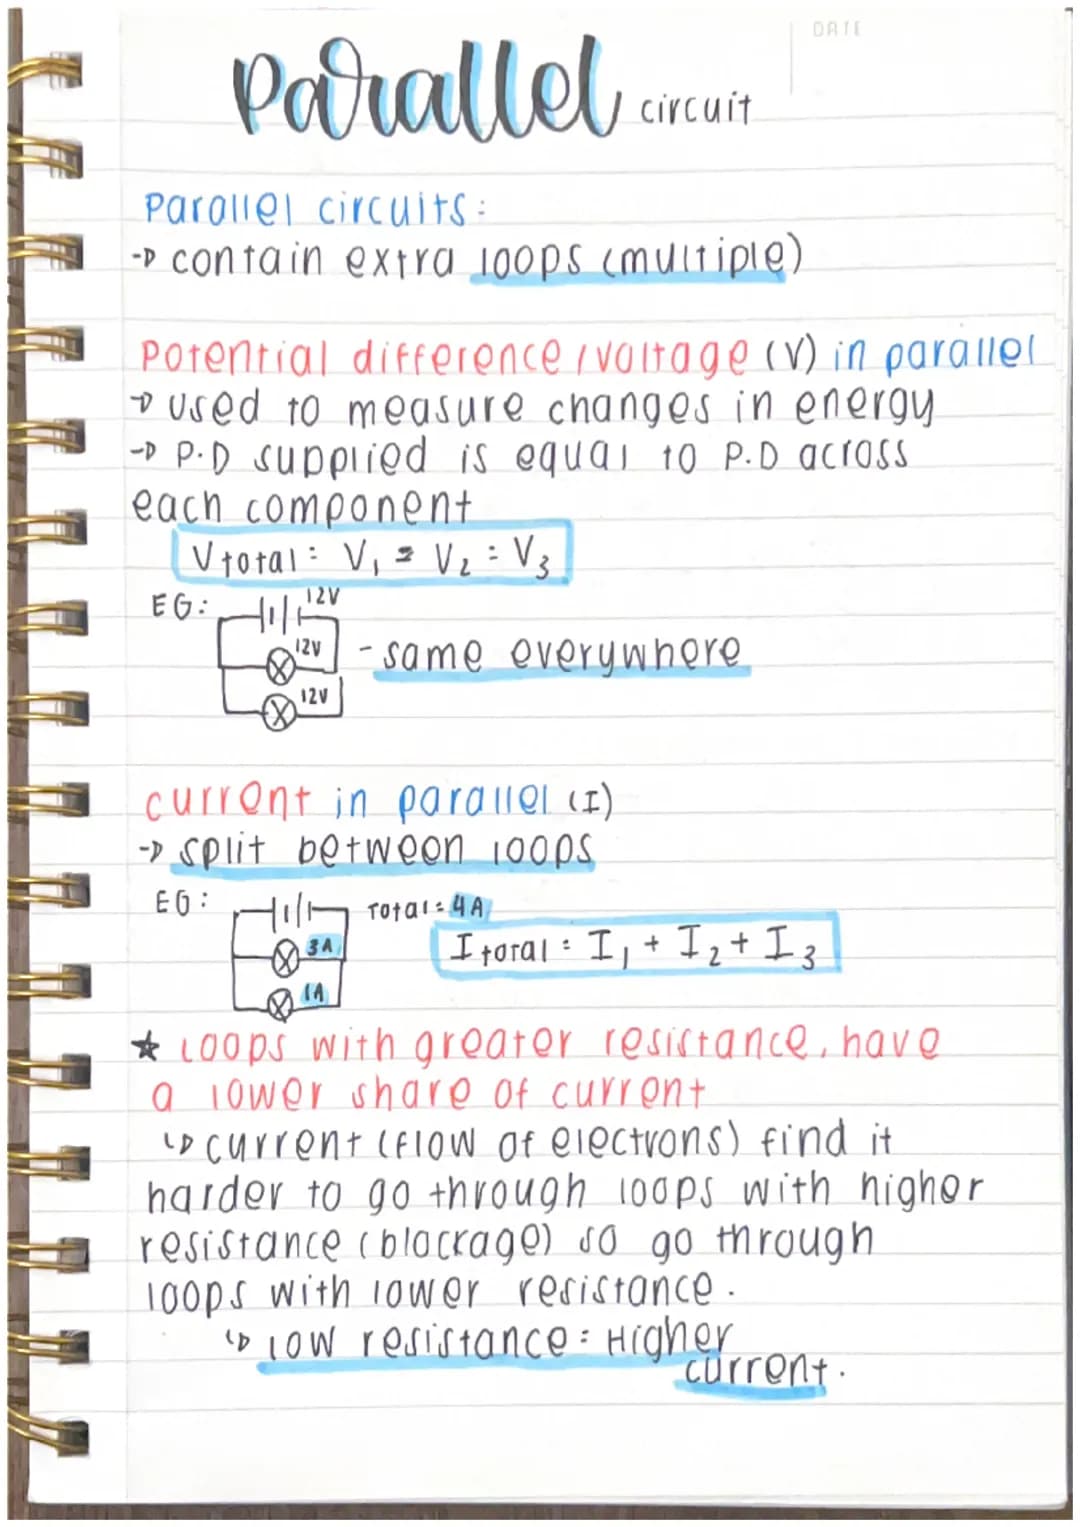 DATE
Parallel circuit
Parallel circuits:
-> contain extra loops (multiple)
Potential difference / voltage (V) in parallel
-> used to measure changes in energy
-> P.D supplied is equal to P.D across
each component
Vtotal = V₁ = V₂ = V₃
EG:
12V
12V
- same everywhere
12V
current in parallel (I)
-> split between loops
EG:
Total = 4A
3A
Itotal = I₁ + I₂ + I₃
1A
★ Loops with greater resistance, have
a lower share of current
↳ current (flow of electrons) find it
harder to go through loops with higher
resistance (blockage) so go through
loops with lower resistance.
↳ low resistance = Higher
current.